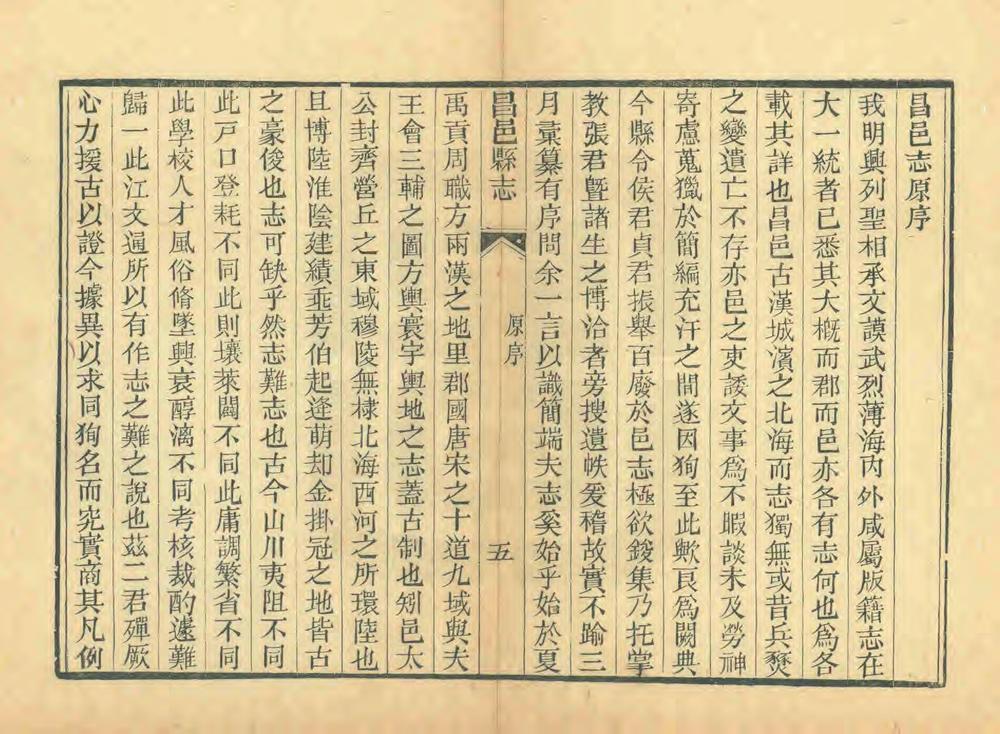 昌邑志原序
我明興列聖相承文謨武烈薄海內外咸屬版籍志在
大一統者已悉其大槪而郡而邑亦各有志何也爲各
載其詳也昌邑古漢城濱之北海而志獨無或昔兵燹
之變遺亡不存亦邑之吏諉文事爲不暇談未及勞神
寄慮蒐獵於簡編充汗之間遂因狥至此歟良爲闕典
今縣令侯君貞君振舉百廢於邑志極欲鋟集乃托掌
教張君曁諸生之博洽者旁搜遺帙爰稽故實不踰三
月彙纂有序問余一言以識簡端夫志奚始乎始於夏
昌邑縣志
原序
五
禹貢周職方兩漢之地里郡國唐宋之十道九域與夫
王會三輔之圖方輿寰宇輿地之志蓋古制也矧邑太
公封齊營丘之東域穆陵無棣北海西河之所環陸也
且博陸淮陰建績垂芳伯起逄萌却金掛冠之地皆古
之豪俊也志可缺乎然志難志也古今山川夷阻不同
此戸口登耗不同此則壤萊闢不同此庸調繁省不同
此學校人才風俗脩墜興衰醇漓不同考核裁酌遽難
歸一此江文通所以有作志之難之說也茲二君殫厥
心力援古以證今據異以求同狥名而究實商其凡例